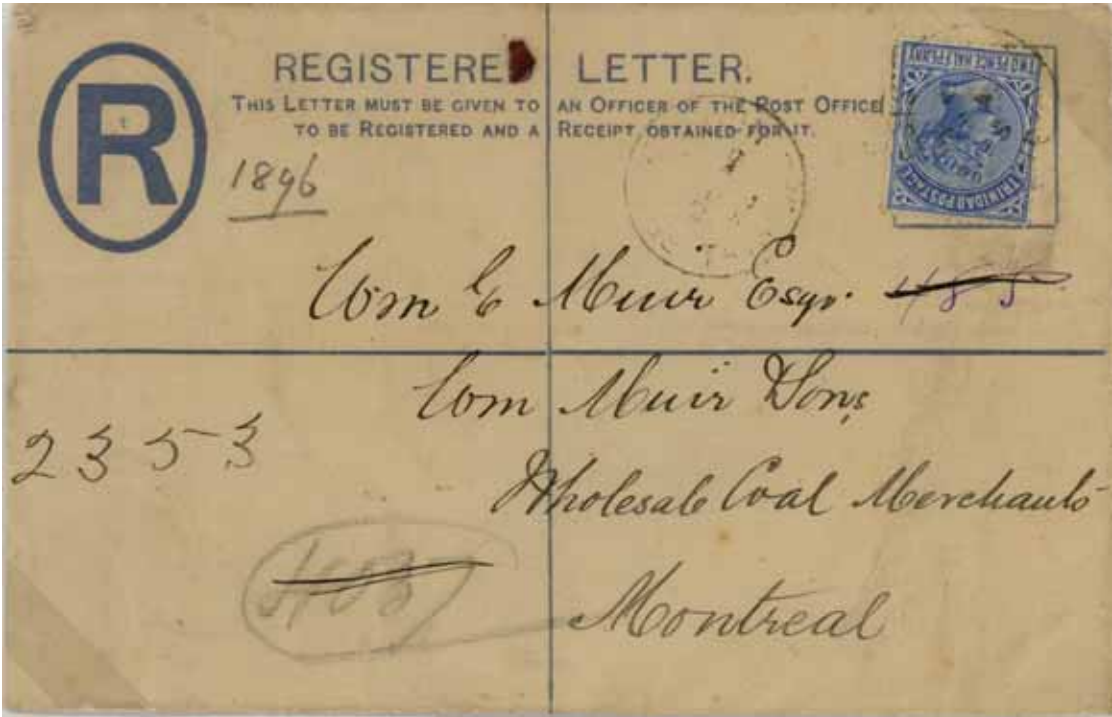 R
REGISTERED LETTER.
THIS LETTER MUST BE GIVEN TO AN OFFICER OF THE POST OFFICE
TO BE REGISTERED AND A RECEIPT OBTAINED FOR IT.
TWO PENCE HALFPENNY
TRINIDAD POSTAGE
1896
Wm E Muir Esqr.
Wm Muir & Sons
Wholesale Coal Merchants
Montreal
2353